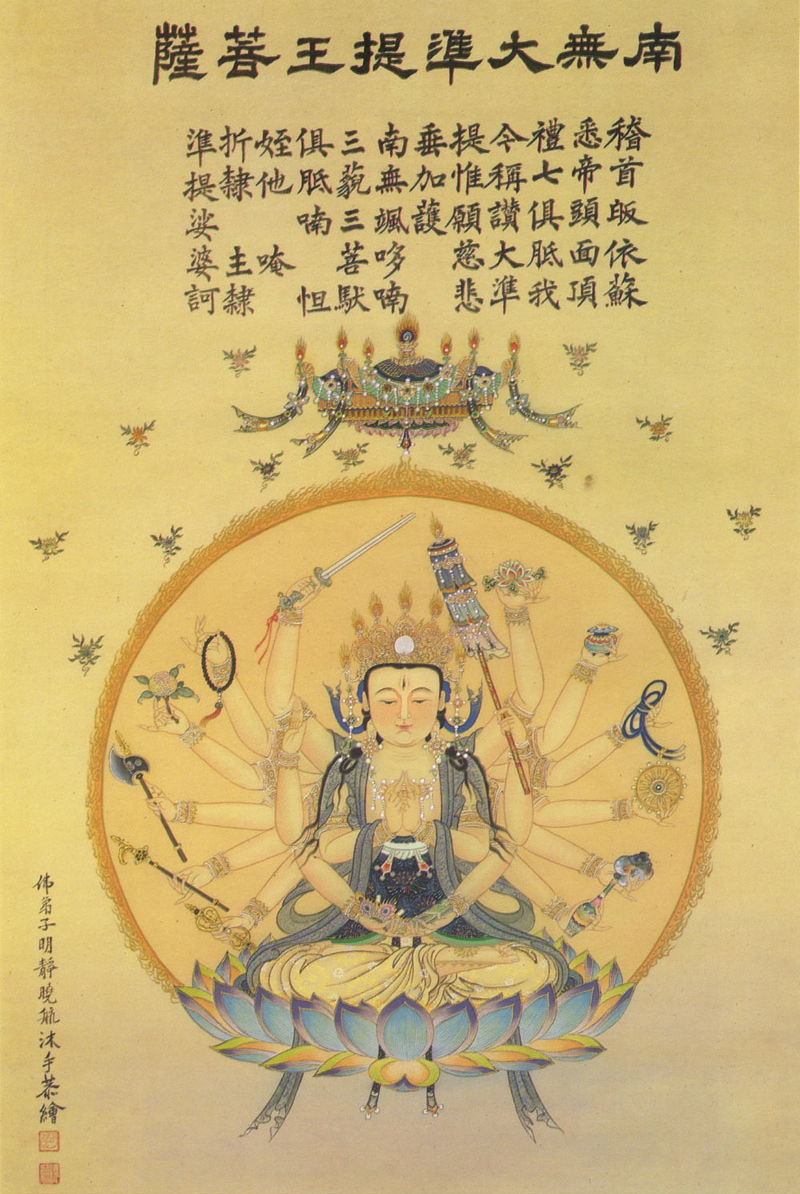 南無大準提王菩薩
稽首皈依蘇
悉帝頭面頂
禮七俱胝我
今稱讚大準
提惟願慈悲
垂加護
南無颯哆喃
三藐三菩馱
俱胝喃 怛
姪他 唵
折隸 主隸
準提娑婆訶
佛弟子明靜曉沐手恭繪